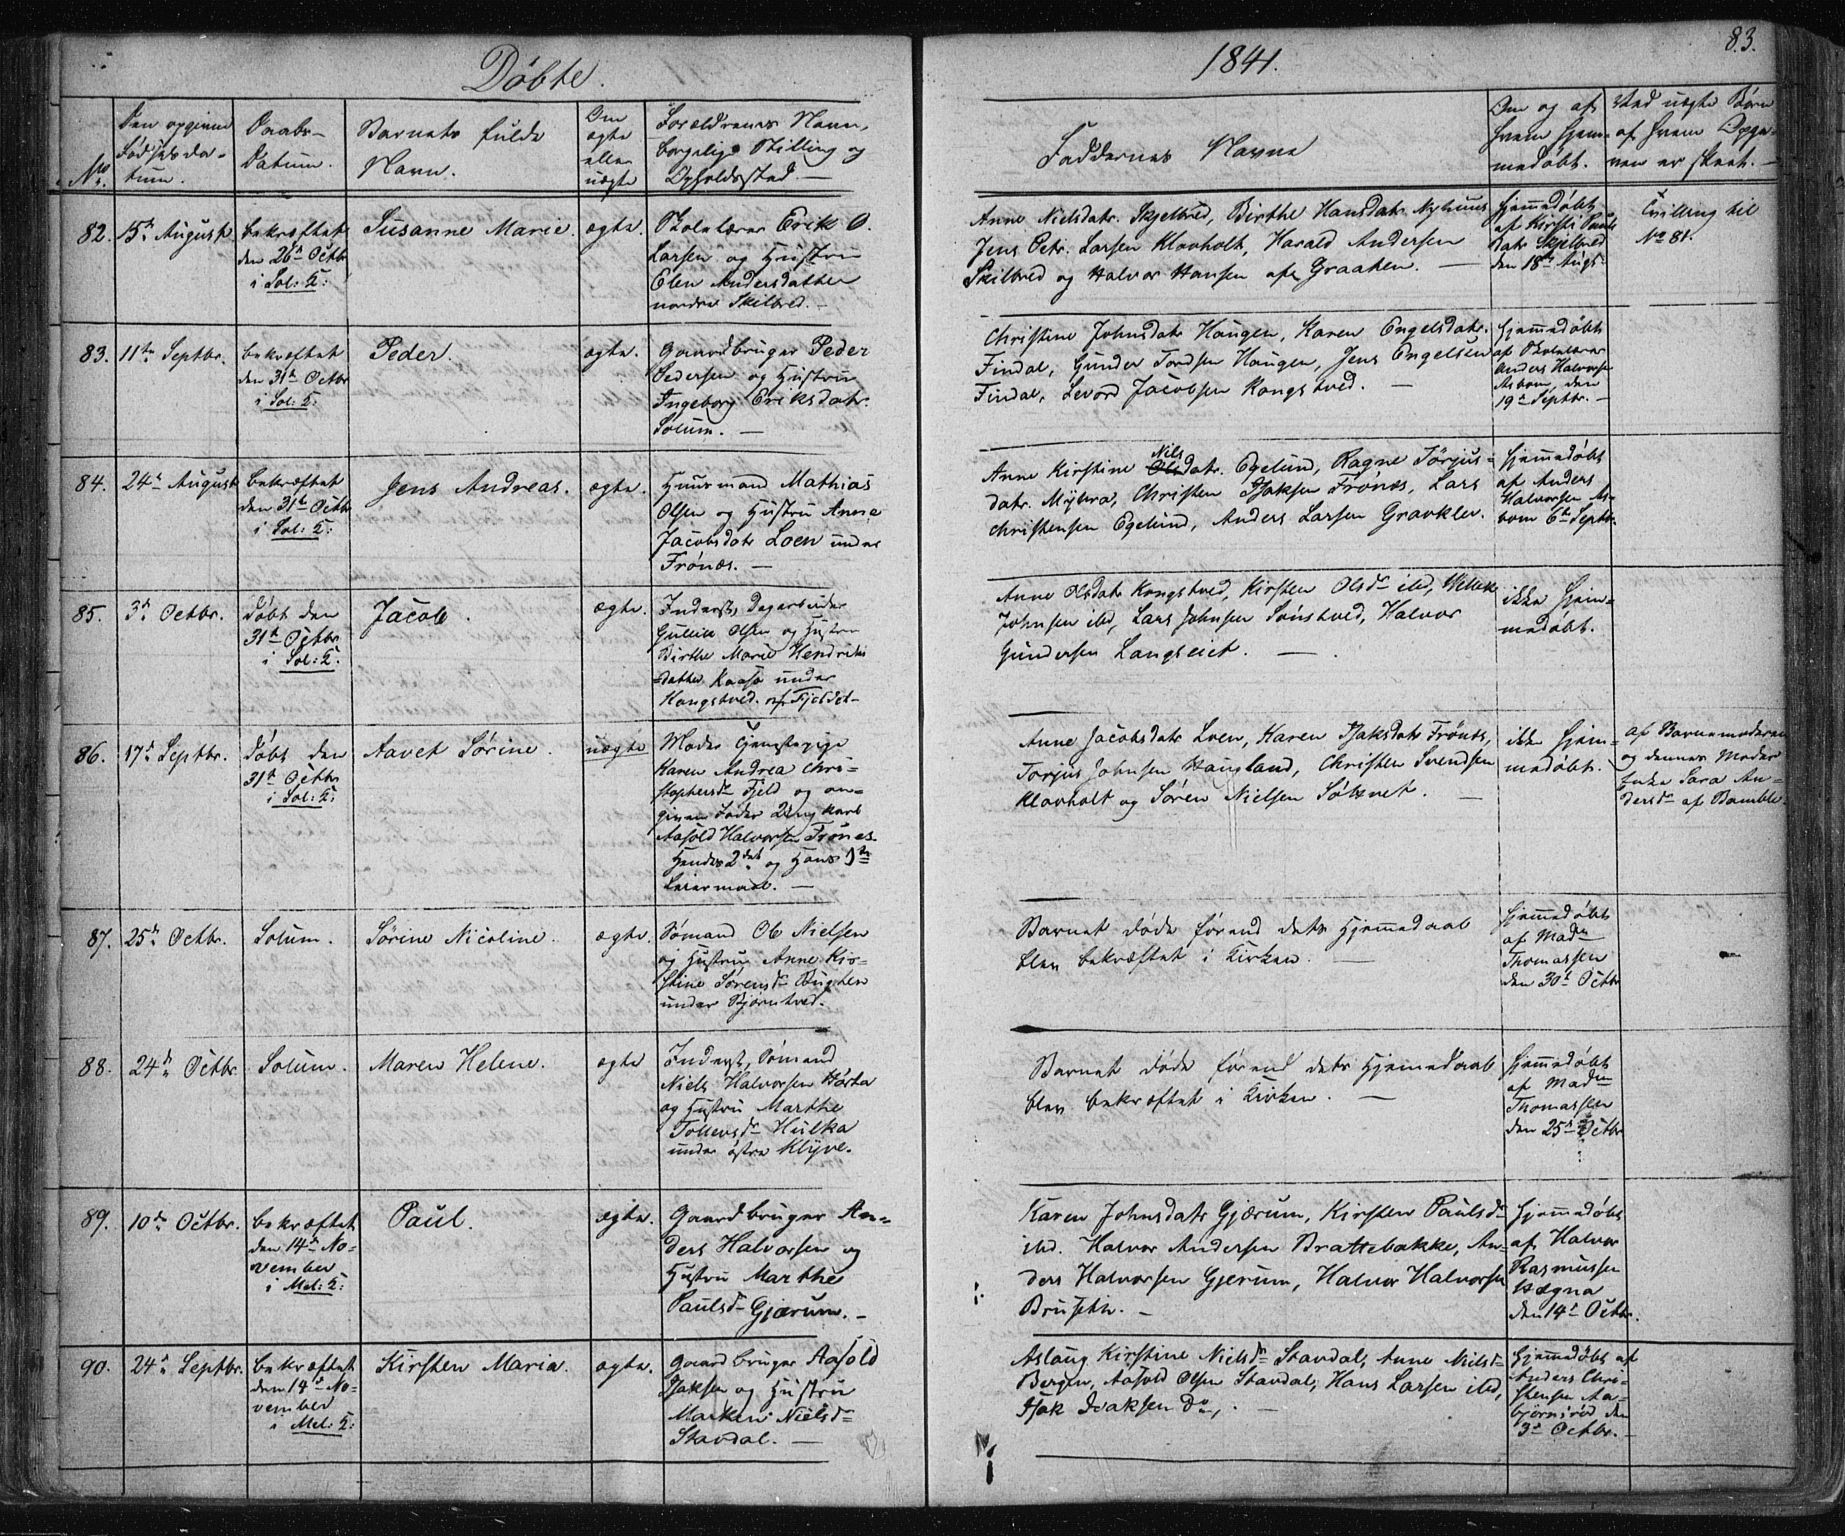 Døbte.
1841.
83.
No.
Den opgivne
Fødselsda-
tum.
Daabs-
Datum.
Barnets fulde
Navn.
Om
ægte
eller
uægte
Forældrenes Navn,
borgelige Stilling og
Opholdssted. —
Faddernes Navne
Om og af
hvem hjem-
medøbt.
Ved uægte Børn
af hvem Opga-
ven er skeet. —
82.
15de August
bekræftet
den 26de Octbr
i Sol: K:
Susanne Marie
ægte.
Skolelærer Erik O.
Larsen og Hustru
Elen Andersdatter
nordre Skilbred. —
Anne Nielsdatr. Skjelbred, Birthe Hansdatr. Nyhuus
Jens Petr. Larsen Klovholt, Harald Andersen
Skilbred og Halvor Hansen af Graaten. —
Hjemmedøbt
af Kirsti Pauls
datr Skjelbred
den 18de Augst
Tvilling til
No 81.
83.
11te Septbr.
bekræftet
den 31te Octbr
i Sol: K:
Peder.
ægte.
Gaardbruger Peder
Pedersen og Hustru
Ingeborg Eriksdatr.
Solum. —
Christine Johnsdatr Haugen, Karen Engelsdatr.
Findal, Gunder Tordsen Haugen, Jens Engelsen
Findal, Levord Jacobsen Kongstved. —
Hjemmedøbt
af Skolelærer
Anders Halvorsen
Asbom, den
19de Septbr. —
84.
24de August
bekræftet
den 31te Octbr
i Sol: K:
Jens Andreas.
ægte.
Huusmand Mathias
Olsen og Hustru Anne
Jacobsdatr Loen under
Frønæs. —
Anne Kirstine Nils
Olsdatr. Egelund, Ragne Tørjus-
datr. Myhra, Christen Isaksen Frønæs, Lars
Christensen Egelund, Anders Larsen Gravklev.
Hjemmedøbt
af Anders
Halvorsen As-
bom 6te Septbr.
85.
3de Octbr.
døbt den
31te Octbr
i Sol: K:
Jacob.
ægte.
Inderst, Dagarbeider
Gullik Olsen og Hustru
Birthe Marie Hendriks
datter Kaasa under
Kongstved. af Fjeldet —
Anne Olsdatr Kongstved, Kirsten Olsdr ibd,
Johnsen ibd, Lars Johnsen Sønstved, Halvor
Gundersen Langseiet. —
ikke hjem-
medøbt.
86.
17de Septbr.
døbt den
31te Octbr
i Sol: K:
Aavet Sørine.
uægte.
Moder Tjenstepige
Karen Andrea Chri-
stophersdr Fjeld og an-
given Fader Ungkarl
Aasold Halvorsen Frønes
Hendes 2det og Hans 1ste
Leiermaal. —
Anne Jacobsdatr Loen, Karen Isaksdatr Frønes,
Torjus Johnsen Haugland, Christen Svendsen
Klovholt og Søren Nielsen —
ikke hjem-
medøbt.
af Barnemoderen
og dennes Moder
Enke Sara An-
dersdr af Bamble.
87.
25de Octbr.
Solum.
Sørine Nicoline.
ægte.
Sømand Ole Nielsen
og Hustru Anne Kir-
stine Sørensdr Bugten
under Bjørntved.
Barnet døde førend dets Hjemmedaab
blev bekræftet i Kirken. —
Hjemmedøbt
af Madm
Thomassen
den 30te Octbr
88.
24de Octbr.
Solum.
Maren Helene.
ægte
Inderst, Sømand
Niels Halvorsen Børta
og Hustru Marthe
Tollevsdr Hulka
under østre Klyve.
Barnet døde førend dets Hjemmedaab
blev bekræftet i Kirken. —
Hjemmedøbt
af Madm
Thomassen
den 25de Octbr
89.
10de Octbr.
bekræftet
den 14de No-
vember
i Mel: K:
Paul.
ægte.
Gaardbruger An-
ders Halvorsen og
Hustru Marthe
Paulsdr Gjærum. —
Karen Johnsdatr Gjærum, Kirsten Paulsdr
ibd. Halvor Andersen Brattebakke, An-
ders Halvorsen Gjerum, Halvor Halvorsen
Brusetn. —
Hjemmedøbt
af Halvor
Rasmussen
Hægna
den 14de Octbr.
90.
24de Septbr.
bekræftet
den 14de No-
vember
i Mel: K:
Kirsten Maria.
ægte.
Gaardbruger Aasold
Isaksen og Hustru
Marken Nielsdr
Stavdal. —
Aslaug Kirstine Nielsdr Stavdal, Anne Nielsdr
Bergen, Aasold Olsen Stavdal, Hans Larsen ibd,
Isak Isaksen do, —
Hjemmedøbt af
Anders Chri-
stensen Aa-
bjørnsrød den
3de Octbr. —